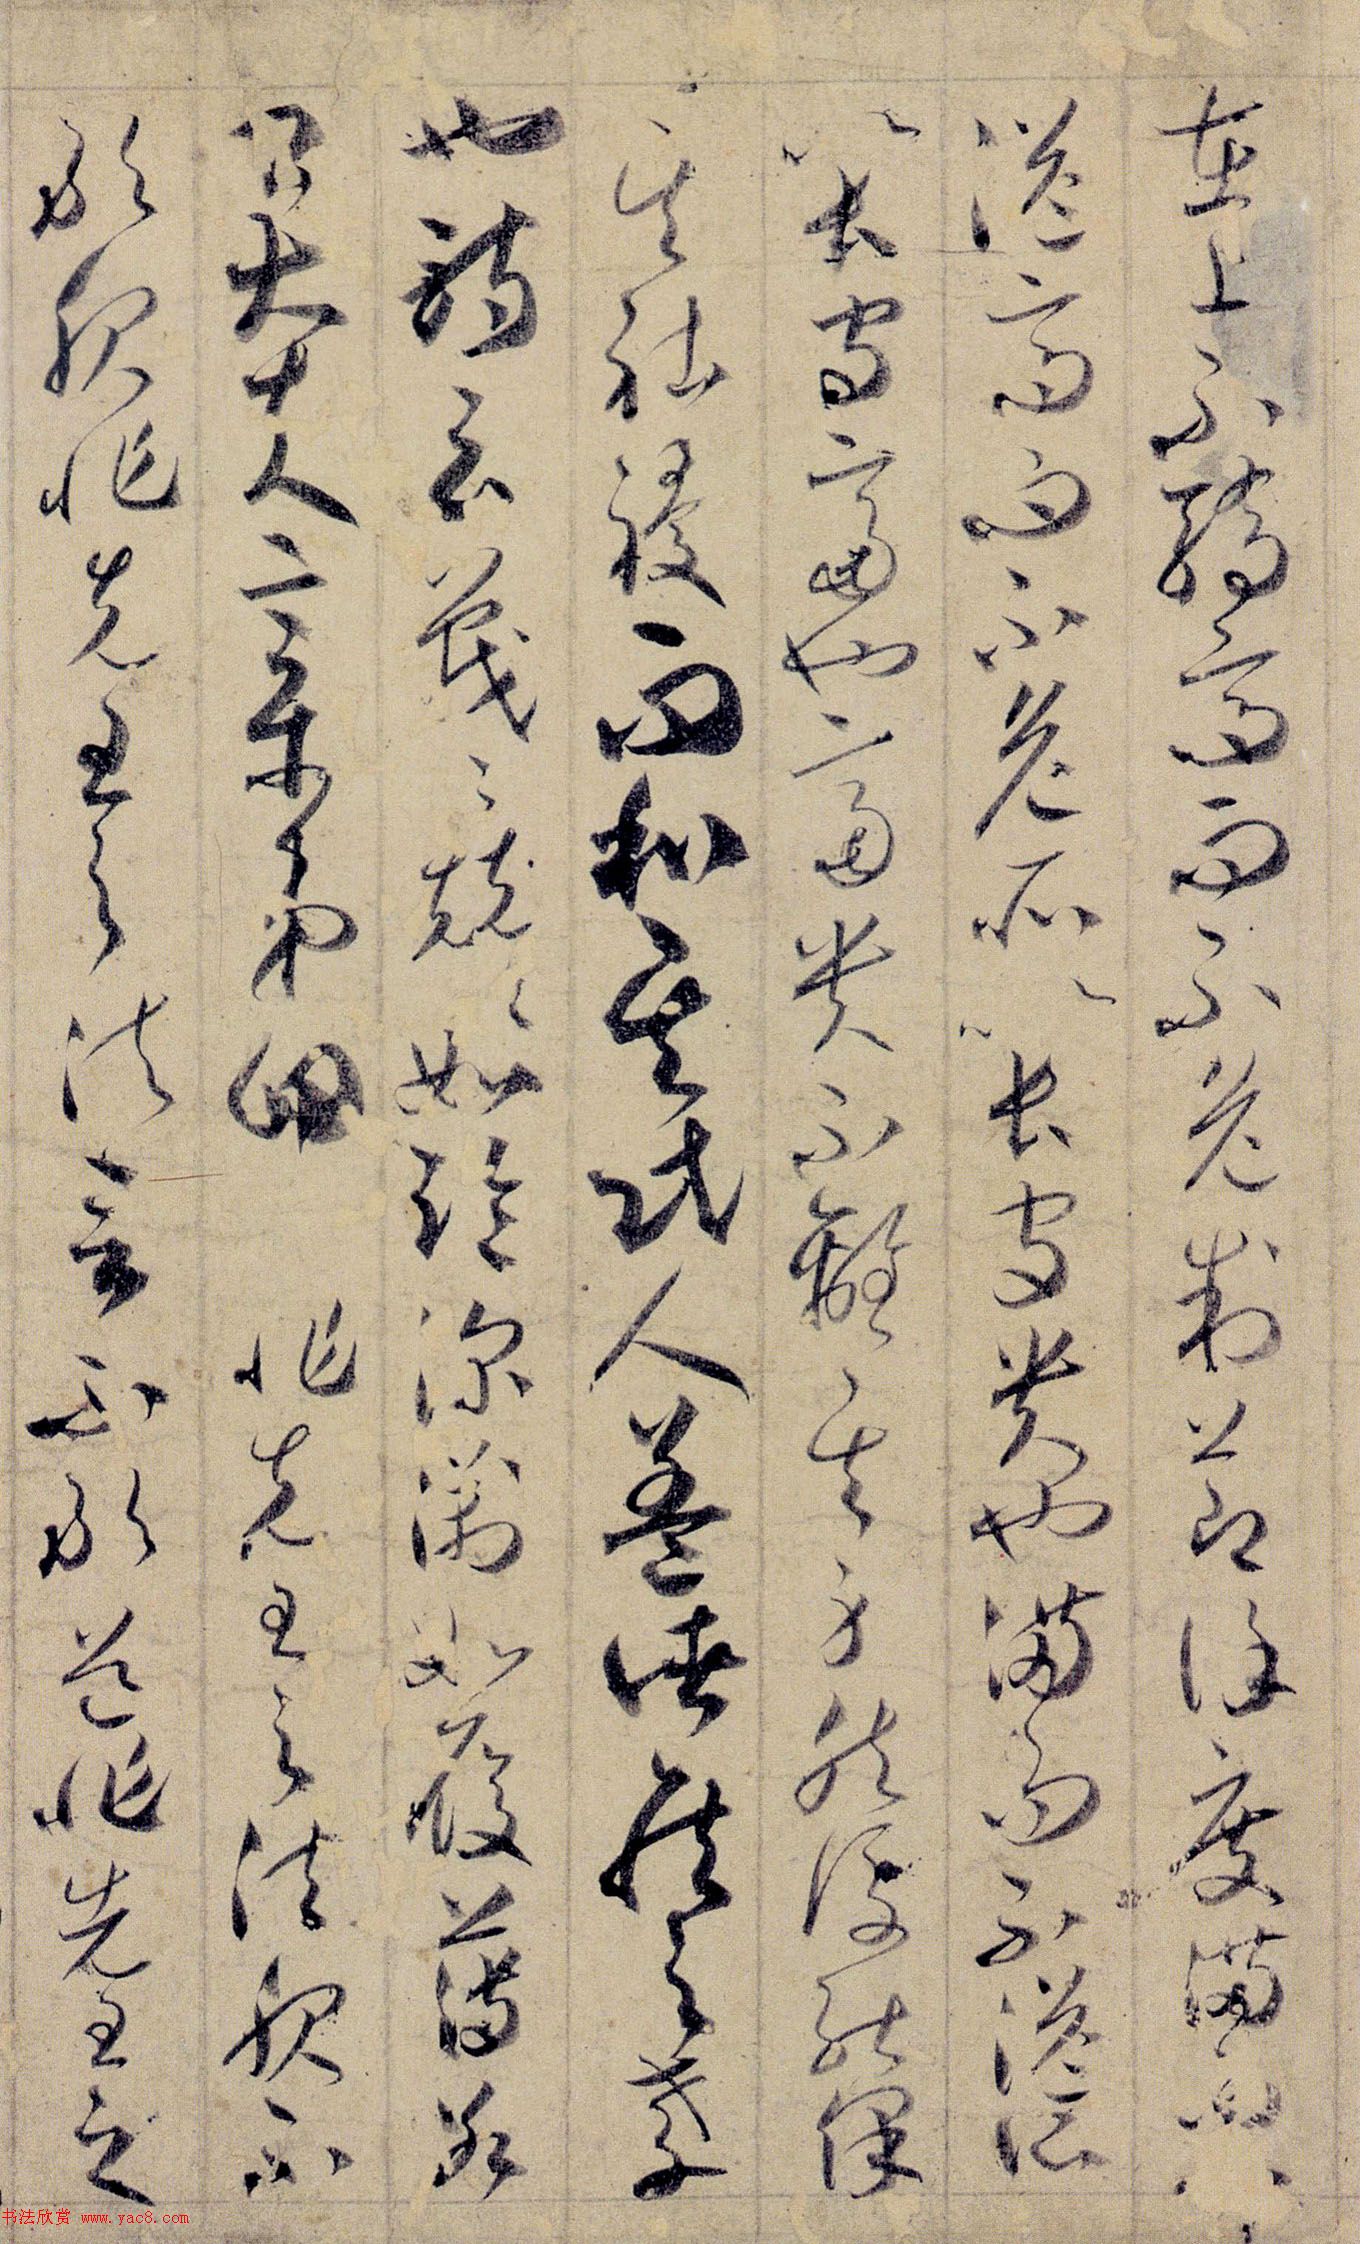 在上不驕高而不危制節謹度滿而不
溢高而不危所以長守貴也滿而不溢所
以長守富也富貴不離其身然後能保
其社稷而和其民人蓋諸侯之孝
也詩云戰〻兢〻如臨深淵如履薄冰
卿大夫章第四 非先王之法服不
敢服非先王之法言不敢道非先王之
书法欣赏 www.yac8.com